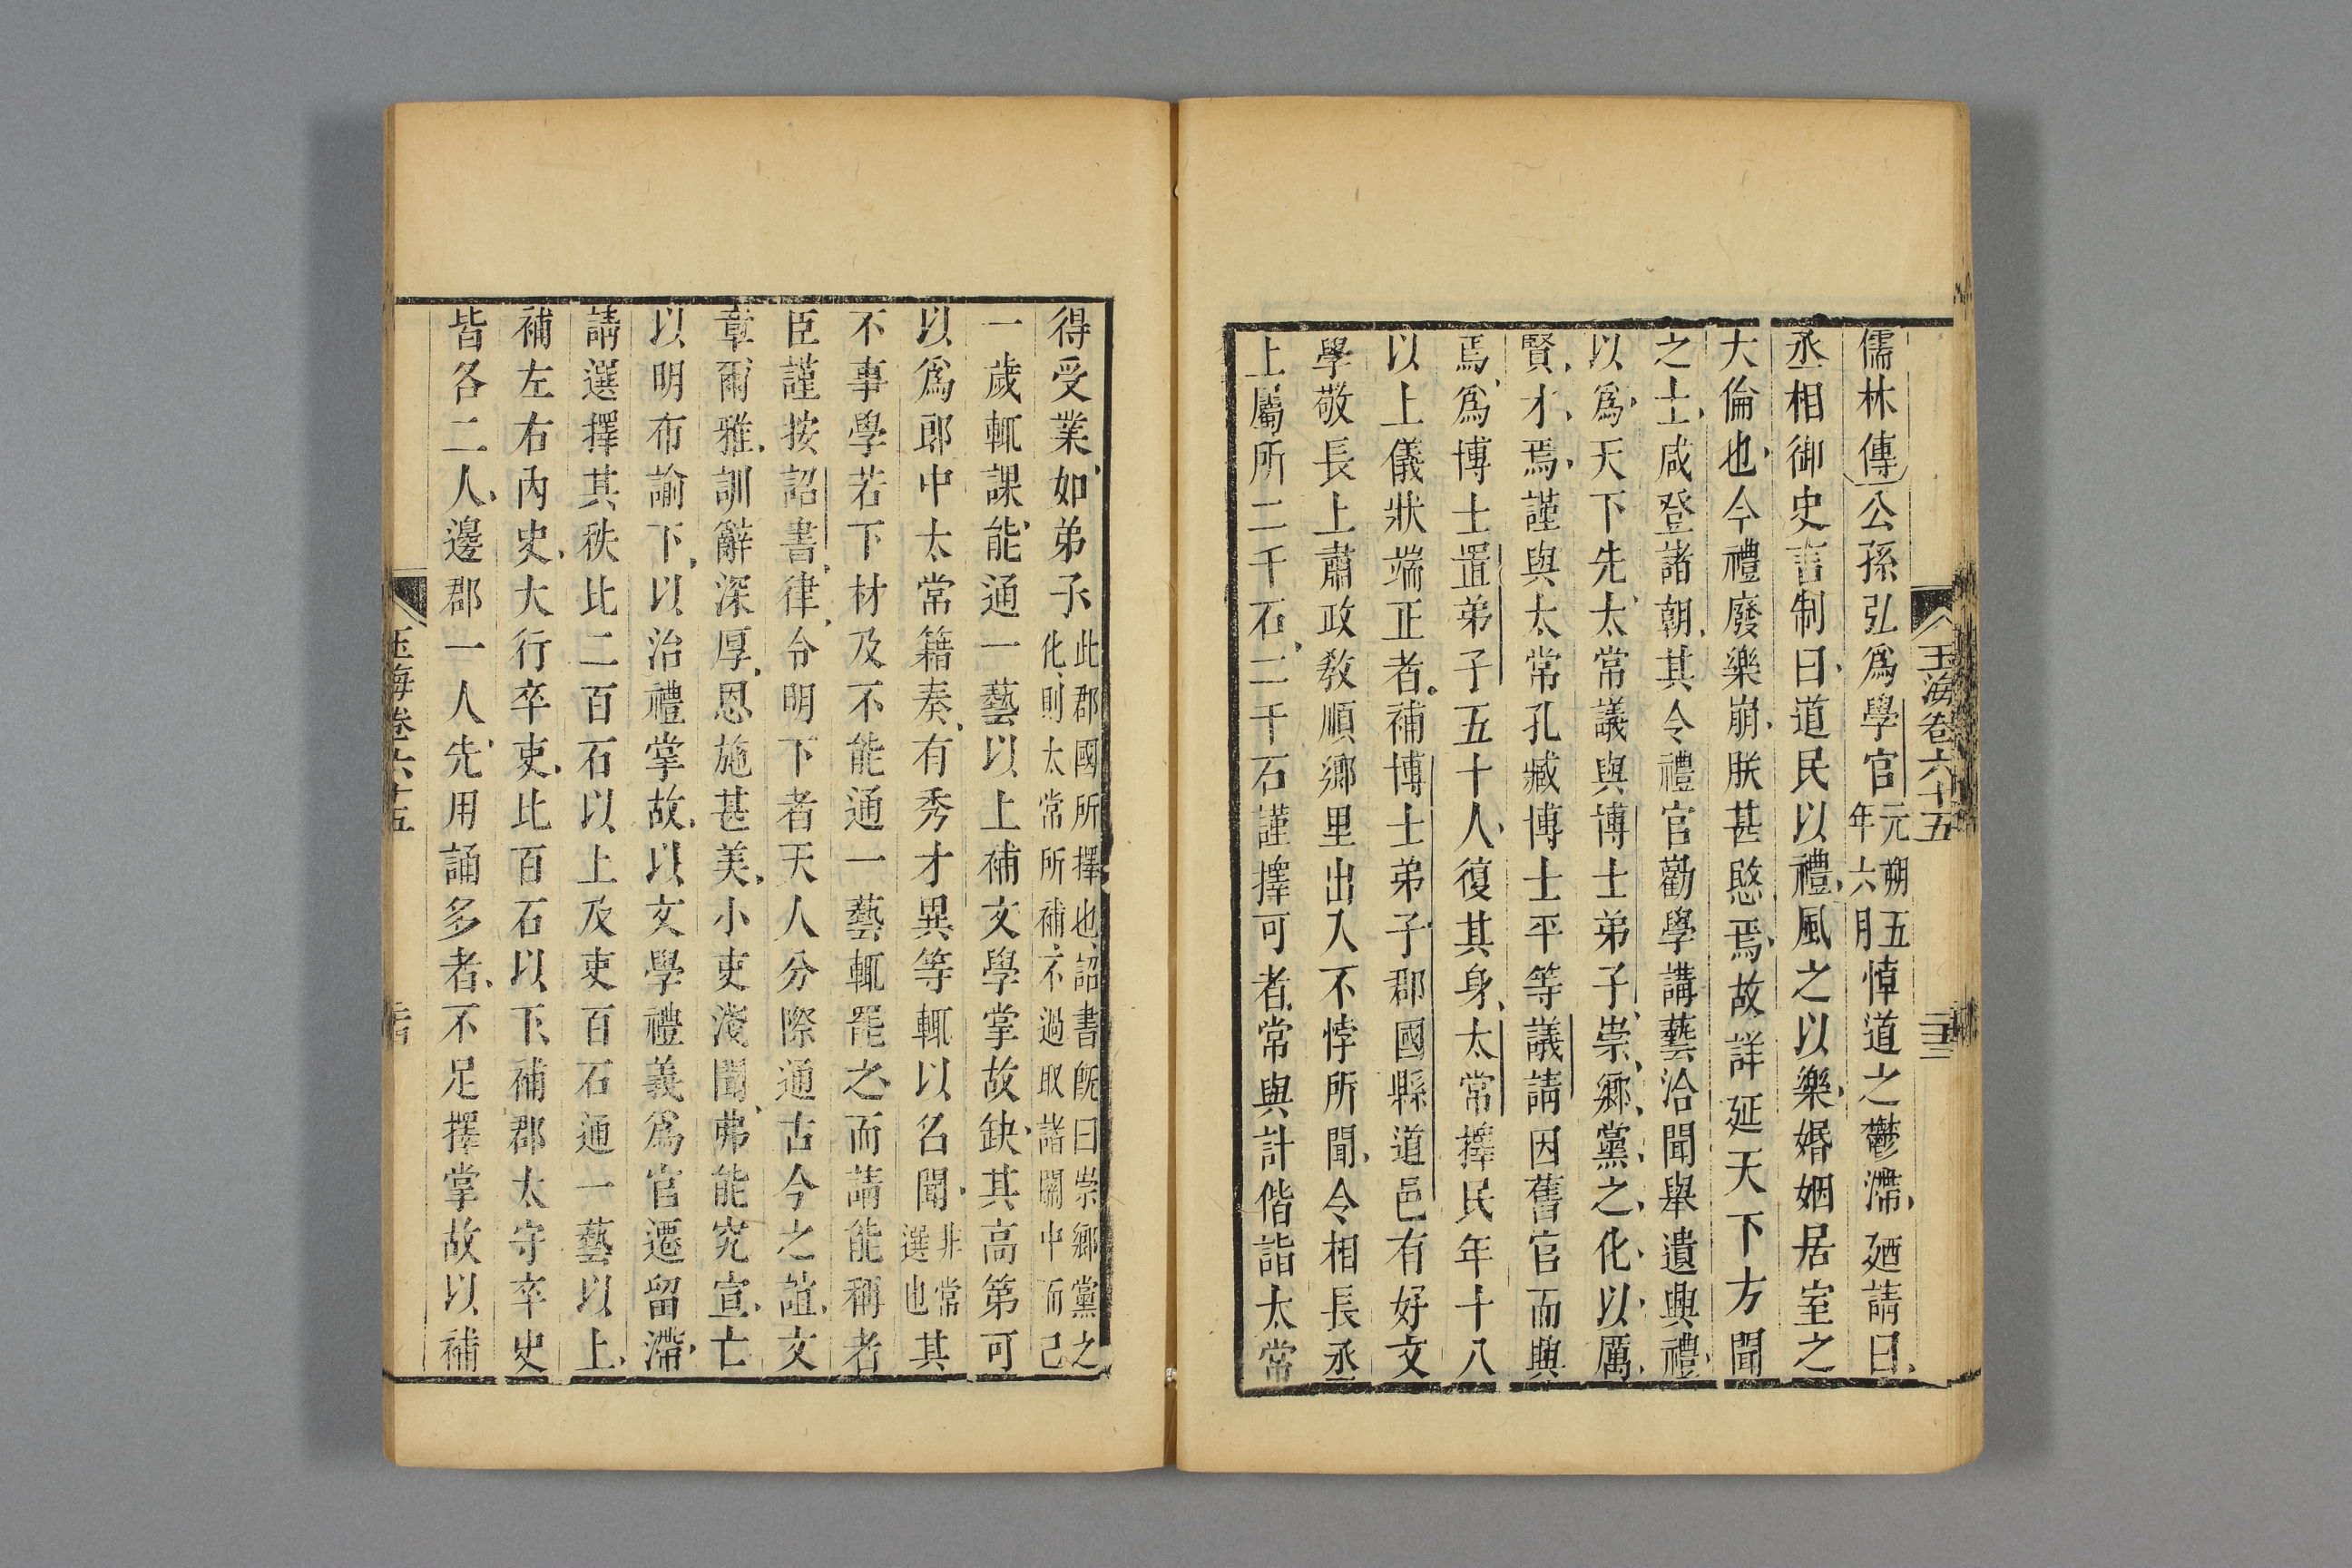 玉海卷六十五
儒林傳公孫弘爲學官元朔五年六月悼道之鬱滯廼請曰
丞相御史言制曰道民以禮風之以樂婚姻居室之
大倫也今禮廢樂崩朕甚愍焉故詳延天下方聞
之士咸登諸朝其令禮官勸學講藝洽聞舉遺興禮
以爲天下先太常議與博士弟子崇鄉黨之化以厲
賢才焉謹與太常孔臧博士平等議請因舊官而興
焉爲博士置弟子五十人復其身太常擇民年十八
以上儀狀端正者補博士弟子郡國縣道邑有好文
學敬長上肅政教順鄉里出入不悖所聞令相長丞
上屬所二千石二千石謹擇可者常與計偕詣太常
得受業如弟子此郡國所擇也詔書旣曰崇鄉黨之化則太常所補不過取諸關中而己
一歲輒課能通一藝以上補文學掌故缺其高第可
以爲郎中太常籍奏有秀才異等輒以名聞非常選也其
不事學若下材及不能通一藝輒罷之而請能稱者
臣謹按詔書律令明下者天人分際通古今之誼文
章爾雅訓辭深厚恩施甚美小吏淺聞弗能究宣亡
以明布諭下以治禮掌故以文學禮義爲官遷留滯
請選擇其秩比二百石以上及吏百石通一藝以上
補左右內史大行卒吏比百石以下補郡太守卒史
皆各二人邊郡一人先用誦多者不足擇掌故以補
玉海卷六十五